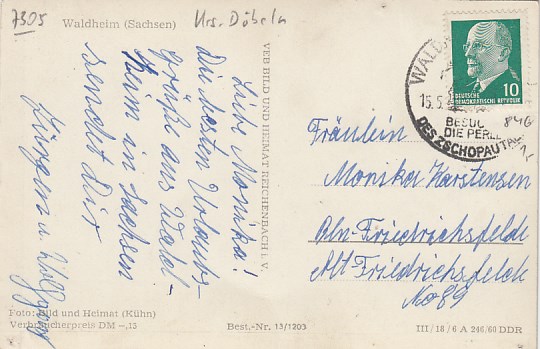 7305
Waldheim (Sachsen)
Krs. Döbeln
Liebe Monika!
Die besten Urlaubs-
grüße aus Wald-
heim in Sachsen
sendet Dir
Jürgen u. Wolfgang
VEB BILD UND HEIMAT REICHENBACH I. V.
WALD
15.5.
BESUC
DIE PERLE
DES ZSCHOPAUTAL
DEUTSCHE
DEMOKRATISCHE REPUBLIK
10
Fräulein
Monika Karstensen
Bln-Friedrichsfelde
Alt Friedrichsfelde
No 89
Foto: Bild und Heimat (Kühn)
Verbraucherpreis DM -,15
Best.-Nr. 13/1203
III/18/6 A 246/60 DDR